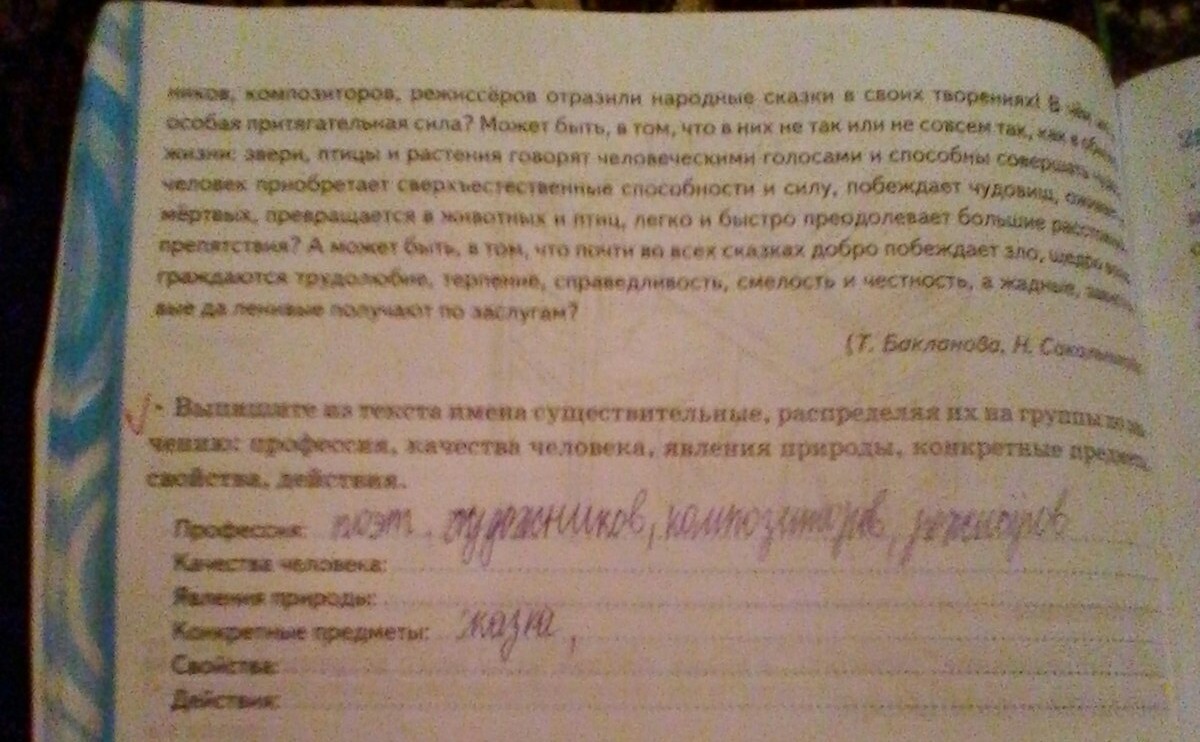 ников, композиторов, режиссёров отразили народные сказки в своих творениях! В чём
особая притягательная сила? Может быть, в том, что в них не так или не совсем так, как в
жизни: звери, птицы и растения говорят человеческими голосами и способны совершать
человек приобретает сверхъестественные способности и силу, побеждает чудовищ,
мёртвых, превращается в животных и птиц, легко и быстро преодолевает большие
препятствия? А может быть, в том, что почти во всех сказках добро побеждает зло, щедро
граждаются трудолюбие, терпение, справедливость, смелость и честность, а жадные,
вые да ленивые получают по заслугам?
(Т. Бакланова, Н.
- Выпишите из текста имена существительные, распределяя их на группы по
чению: профессия, качества человека, явления природы, конкретные
свойства, действия.
Профессия: поэт, художников, композиторов, режиссёров
Качества человека:
Явления природы:
Конкретные предметы:
Свойства:
Действия: